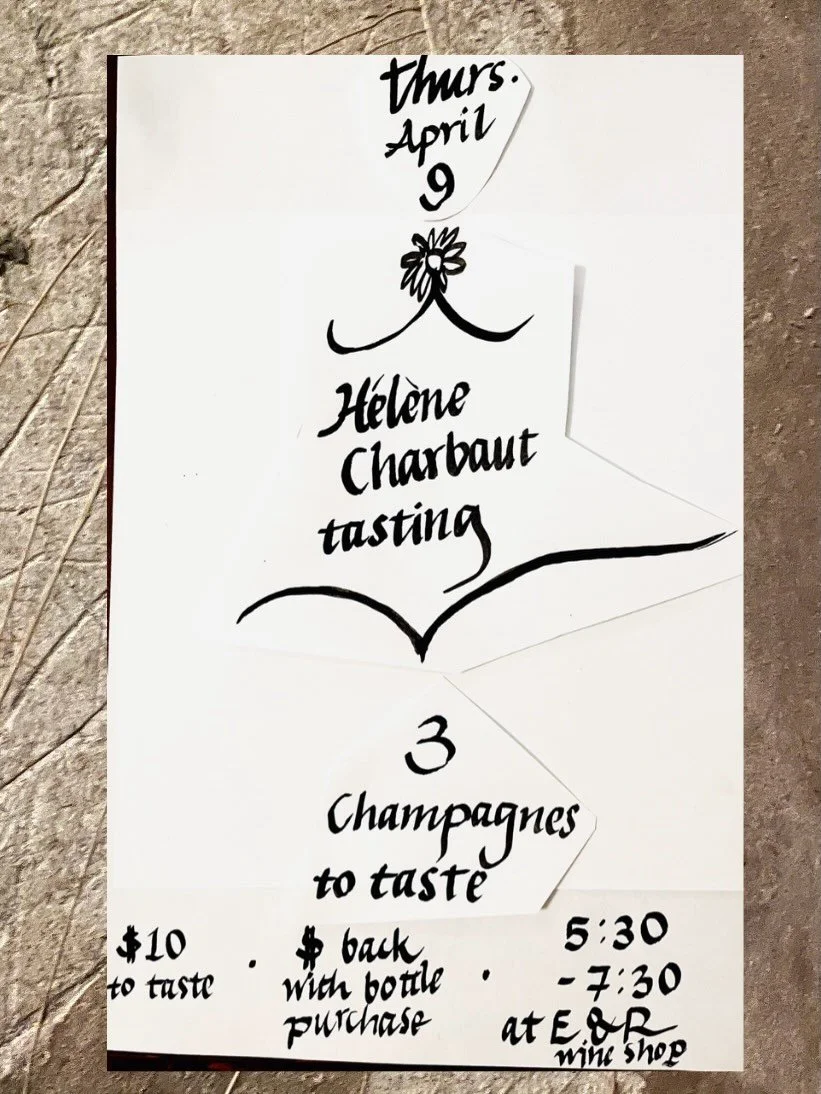 thurs.
April
9
Hélène
Charbaut
tasting
3
Champagnes
to taste
$10
to taste
·
$ back
with bottle
purchase
·
5:30
-7:30
at E&R
wine shop